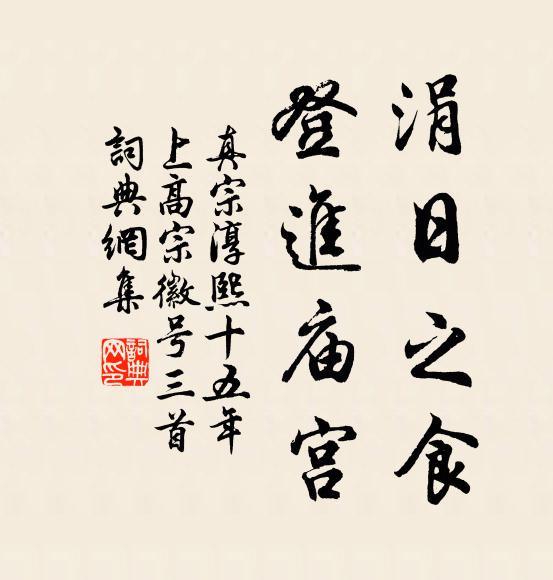 涓日之食
登進庙宫
真宗淳熙十五年
上高宗徽号三首
詞典網集
詞典網印